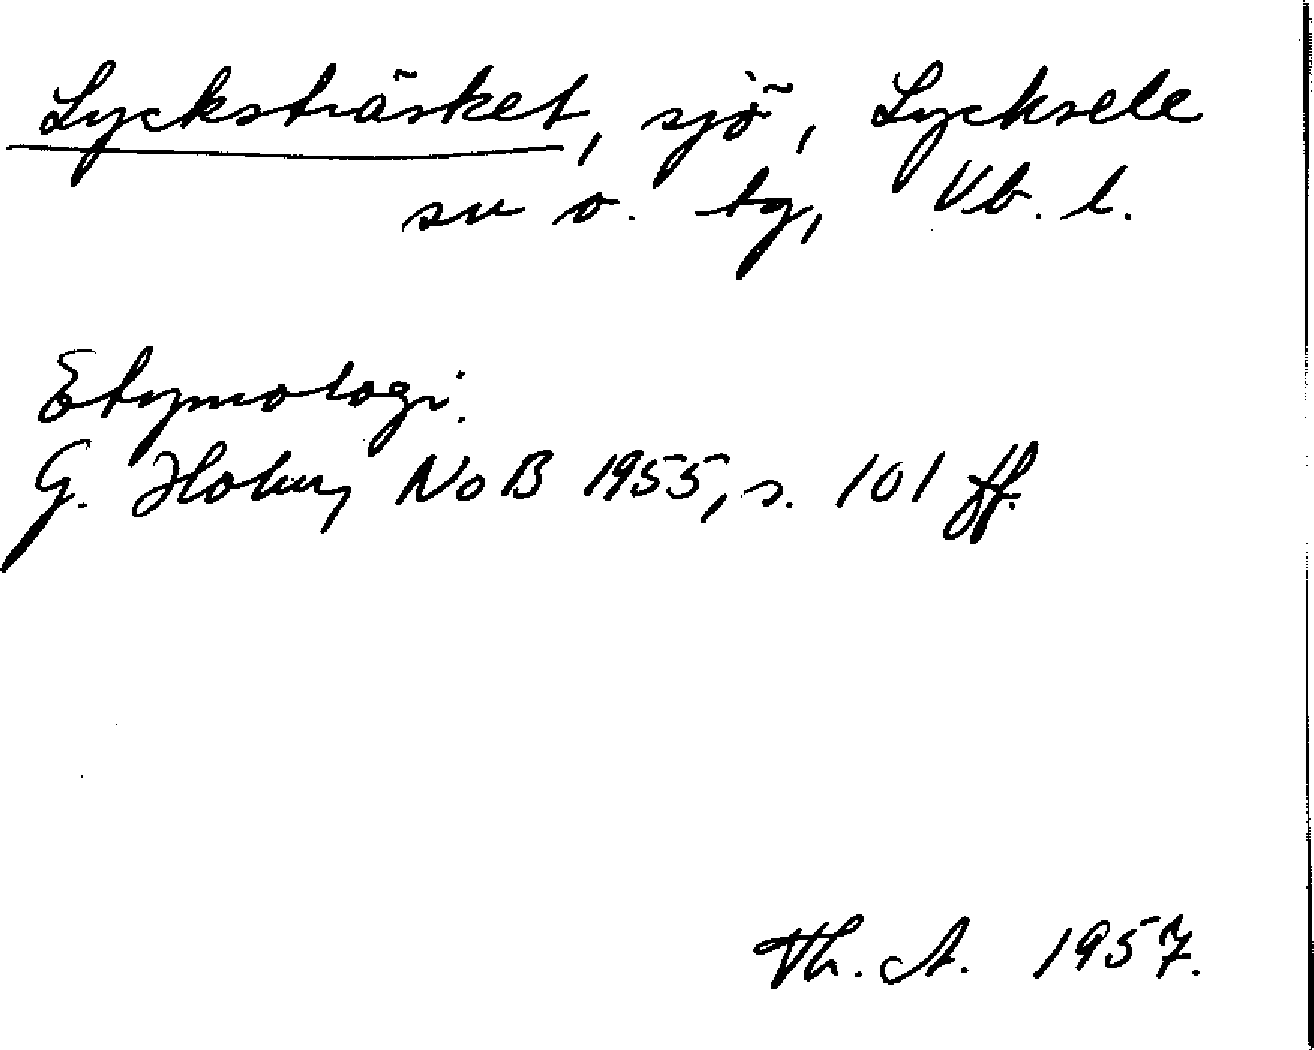 Lycksträsket, sjö, Lycksele
sn o. tg, Vb. l.
Etymologi.
G. Holm, NoB 1955, s. 101 ff.
Th. A. 1957.